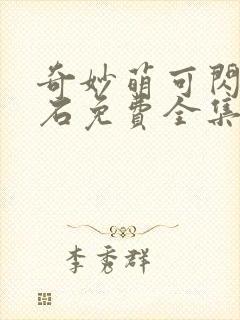 奇妙萌可閃
石免費全集
李秀群